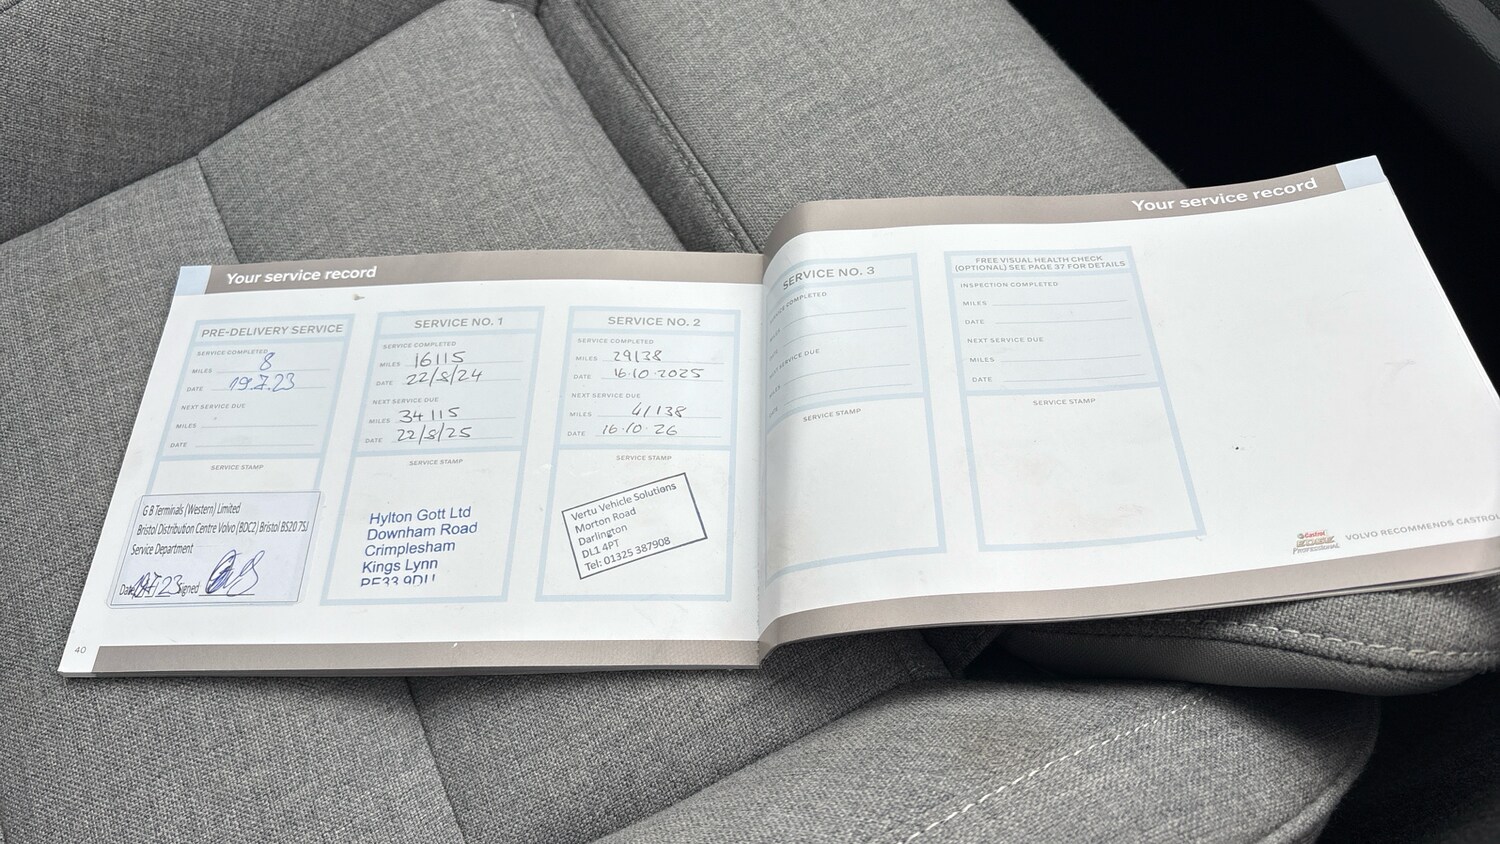 Your service record
PRE-DELIVERY SERVICE
SERVICE COMPLETED
MILES 8
DATE 19.7.23
NEXT SERVICE DUE
MILES
DATE
SERVICE STAMP
G B Terminals (Western) Limited
Bristol Distribution Centre Volvo (BDC2) Bristol BS20 7SJ
Service Department
Date 19/7/23 Signed
SERVICE NO. 1
SERVICE COMPLETED
MILES 16115
DATE 22/8/24
NEXT SERVICE DUE
MILES 34115
DATE 22/8/25
SERVICE STAMP
Hylton Gott Ltd
Downham Road
Crimplesham
Kings Lynn
PE33 9DU
SERVICE NO. 2
SERVICE COMPLETED
MILES 29138
DATE 16.10.2025
NEXT SERVICE DUE
MILES 41138
DATE 16.10.26
SERVICE STAMP
Vertu Vehicle Solutions
Morton Road
Darlington
DL1 4PT
Tel: 01325 387908
40
Your service record
SERVICE NO. 3
COMPLETED
SERVICE DUE
SERVICE STAMP
FREE VISUAL HEALTH CHECK
(OPTIONAL) SEE PAGE 37 FOR DETAILS
INSPECTION COMPLETED
MILES
DATE
NEXT SERVICE DUE
MILES
DATE
SERVICE STAMP
Castrol
EDGE
PROFESSIONAL
VOLVO RECOMMENDS CASTROL